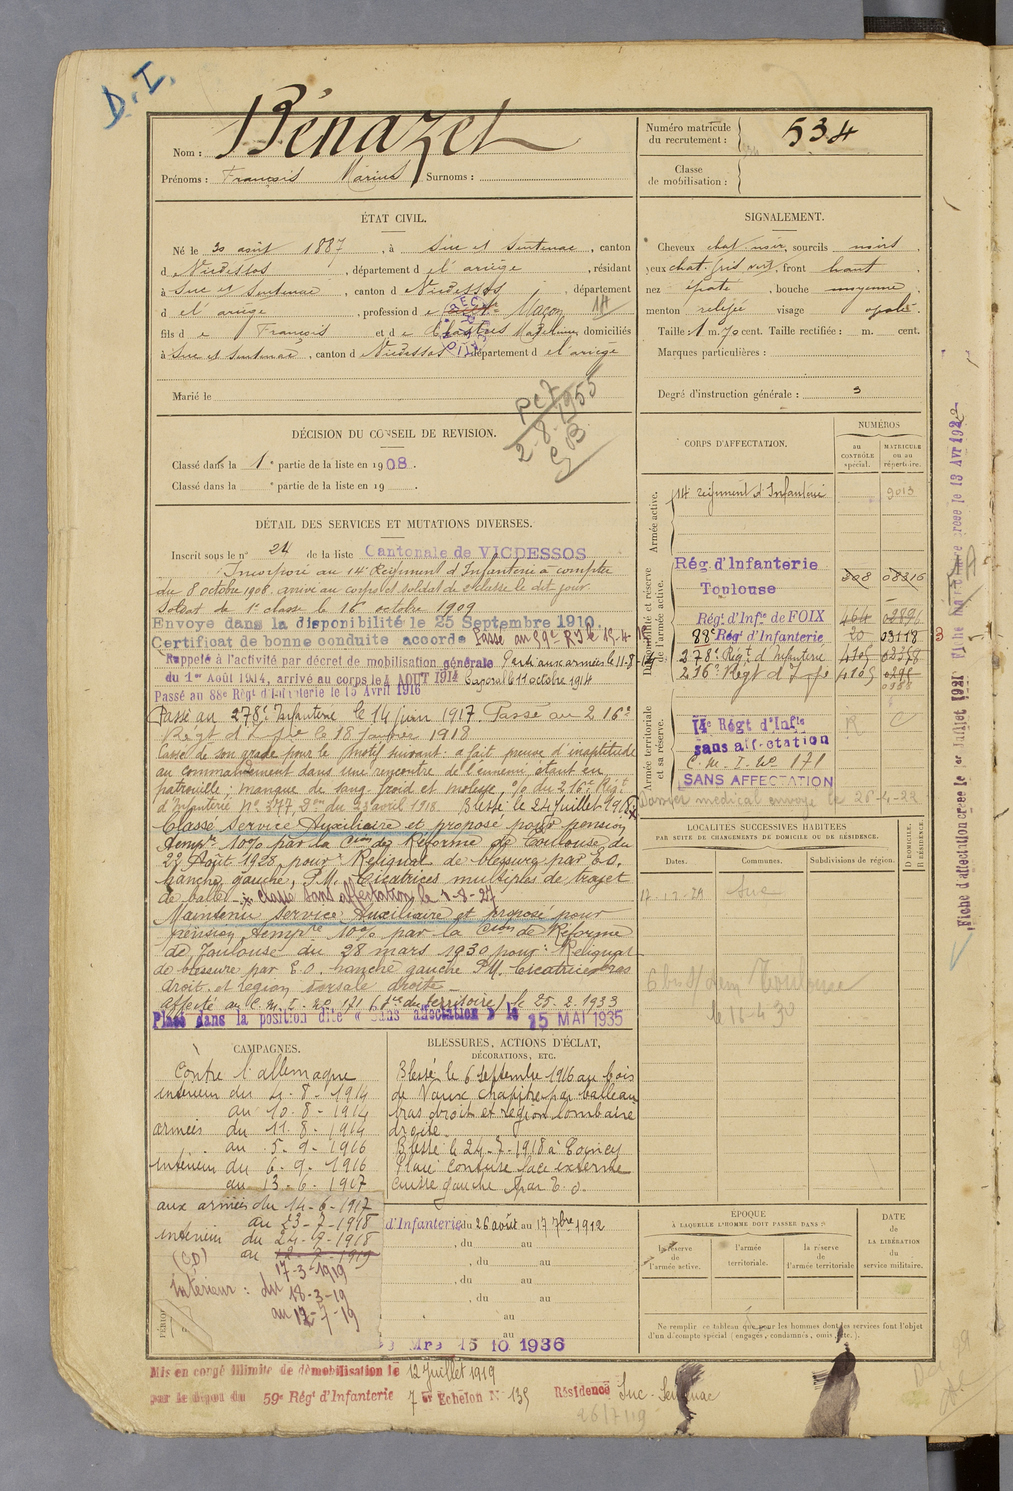 D.I.
Nom : Bénazet
Prénoms : François Marius Surnoms :
Numéro matricule du recrutement : 534
Classe de mobilisation :
ÉTAT CIVIL.
Né le 30 août 1887, à Suc et Sentenac, canton
d Vicdessos, département d e l'ariège, résidant
à Suc et Sentenac, canton d Vicdessos, département
d e l'ariège, profession d e Maçon 14
fils d e François et d e Madeleine, domiciliés
à Suc et Sentenac, canton d Vicdessos, département d e l'ariège
Marié le
PC7
2-8-1955
SIGNALEMENT.
Cheveux chat. noir, sourcils noirs,
yeux chat. gris vert, front haut,
nez épaté, bouche moyenne,
menton relevé visage ovale.
Taille : 1 m. 70 cent. Taille rectifiée : m. cent.
Marques particulières :
Degré d'instruction générale : 3
DÉCISION DU CONSEIL DE REVISION.
Classé dans la 1re partie de la liste en 1908.
Classé dans la e partie de la liste en 19 .
DÉTAIL DES SERVICES ET MUTATIONS DIVERSES.
Inscrit sous le n° 24 de la liste Cantonale de VICDESSOS
Incorporé au 14e Régiment d'Infanterie à compter
du 8 octobre 1908. arrivé au corps et soldat de 2e classe le dit jour
Soldat de 1e classe le 16 octobre 1909
Envoyé dans la disponibilité le 25 Septembre 1910.
Certificat de bonne conduite accordé Passé au 59e RI le 15-4-
Rappelé à l'activité par décret de mobilisation générale Parti aux armées le 11-8-14
du 1er Août 1914, arrivé au corps le 4 AOUT 1914 Caporal le 11 octobre 1914
Passé au 88e Régt d'Infanterie le 15 Avril 1916
Passé au 278e Infanterie le 14 juin 1917. Passé au 216e
Régt d'Inf le 18 Janvier 1918
Cassé de son grade pour le motif suivant : a fait preuve d'inaptitude
au commandement dans une rencontre de l'ennemi étant en
patrouille ; manque de sang froid et molesse, % du 216e Régt
d'Infanterie N° 377, Don du 23 avril 1918. Blessé le 24 Juillet 1918
Classé Service Auxiliaire et proposé pour pension
tempre 10% par la Cion de Réforme de Toulouse du
22 Août 1928, pour : Reliquat de blessure par E.O.
hanche gauche, P.M. Cicatrices multiples de trajet
de balle - Classé sans affectation le 1-8-27
Maintenu Service Auxiliaire et proposé pour
pension tempre 10% par la Cion de Réforme
de Toulouse du 28 mars 1930 pour : Reliquat
de blessure par E.O. hanche gauche P.M. Cicatrice bras
droit et région dorsale droite -
Affecté au C.M.I. no 171 (Sce du territoire) le 25-2-1933
Placé dans la position dite « Sans affectation » le 15 MAI 1935
CORPS D'AFFECTATION.
NUMÉROS
au CONTRÔLE spécial.
MATRICULE ou au répertoire.
Armée active.
14 régiment d'Infanterie 9013
Disponibilité et réserve de l'armée active.
Rég. d'Infanterie Toulouse 308 08316
Régt d'Infie de FOIX 464 02896
88e Régt d'Infanterie 20 03118
278e Régt d'Infanterie
216e Régt d'Infie
Armée territoriale et sa réserve.
14e Régt d'Infie
sans affectation
C.M.I. No 171
SANS AFFECTATION
R C
Dossier médical envoyé le 26-4-22
LOCALITÉS SUCCESSIVES HABITÉES
PAR SUITE DE CHANGEMENTS DE DOMICILE OU DE RÉSIDENCE.
Dates. Communes. Subdivisions de région. D DOMICILE. R RÉSIDENCE.
Suc
Toulouse
le 16-4-30
CAMPAGNES.
Contre l'allemagne
intérieur du 4-8-1914
au 10-8-1914
armées du 11-8-1914
au 5-9-1916
intérieur du 6-9-1916
au 13-6-1917
aux armées du 14-6-1917
au 23-7-1918
intérieur du 24-7-1918
(CD) au
17-3-1919
Intérieur : du 18-3-19
au 12-7-19
BLESSURES, ACTIONS D'ÉCLAT,
DÉCORATIONS, ETC.
Blessé le 6 septembre 1916 au bois
de Vaux Chapitre par balle au
bras droit et région lombaire
droite.
Blessé le 24-7-1918 à Coincy
Plaie contuse face externe
cuisse gauche par E.O.
d'Infanterie du 26 août au 17 7bre 1912
, du au
, du au
, du au
au
au
15 10 1936
ÉPOQUE
À LAQUELLE L'HOMME DOIT PASSER DANS :
la réserve de l'armée active.
l'armée territoriale.
la réserve de l'armée territoriale
DATE de LA LIBÉRATION du service militaire.
Ne remplir ce tableau que pour les hommes dont les services font l'objet
d'un décompte spécial (engagés, condamnés, omis, etc.).
Mis en congé illimité de démobilisation le 12 Juillet 1919
par le dépôt du 59e Régt d'Infanterie 7e Echelon N° 135 Résidence Suc-Sentenac
26/7/19
Fiche d'affectation créée le 1er Juillet 1921